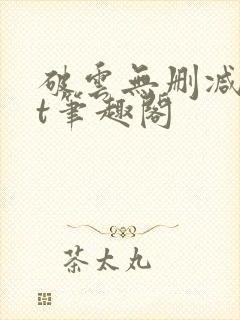 破雲無刪减
t筆趣閣
茶太丸